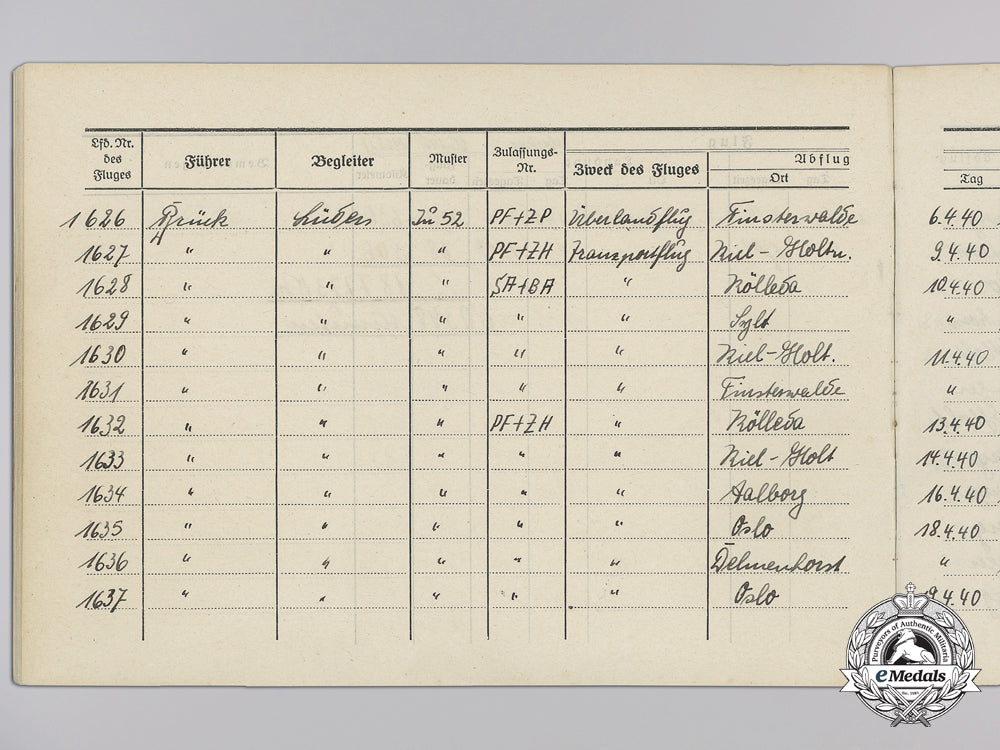 Lfd. Nr. des Fluges Führer Begleiter Muster Zulassungs-Nr. Zweck des Fluges Abflug Ort Tag
1626 Brück Lüders Ju 52 PF+ZP Überlandflug Finsterwalde 6.4.40
1627 " " " PF+ZH Transportflug Kiel-Holtn. 9.4.40
1628 " " " SA+BA " Kölleda 10.4.40
1629 " " " " " Sylt "
1630 " " " " " Kiel-Holt. 11.4.40
1631 " " " " " Finsterwalde "
1632 " " " PF+ZH " Kölleda 13.4.40
1633 " " " " " Kiel-Holt 14.4.40
1634 " " " " " Aalborg 16.4.40
1635 " " " " " Oslo 18.4.40
1636 " " " " " Delmenhorst "
1637 " " " " " Oslo 19.4.40
Purveyors of Authentic Militaria
eMedals